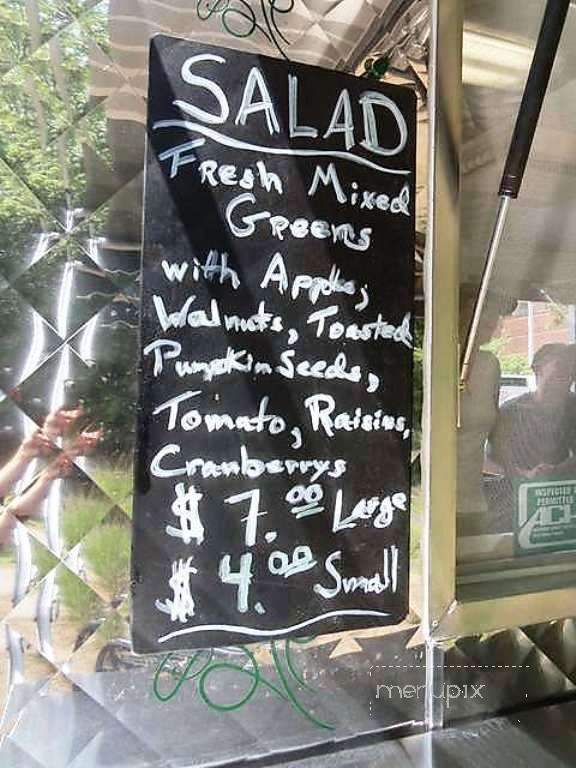 SALAD
Fresh Mixed
Greens
with Apples,
Walnuts, Toasted
Pumpkin Seeds,
Tomato, Raisins,
Cranberrys
$ 7.00 Large
$ 4.00 Small
INSPECTED
PERMITTED
ACH
menupix